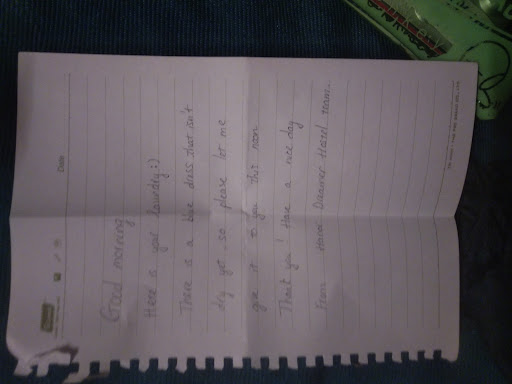 Date
Good morning
Here is your laundry :)
There is a blue dress that isn't
dry yet so please let me
give it to you this noon
Thank you! Have a nice day
From Hanoi Hostel team.